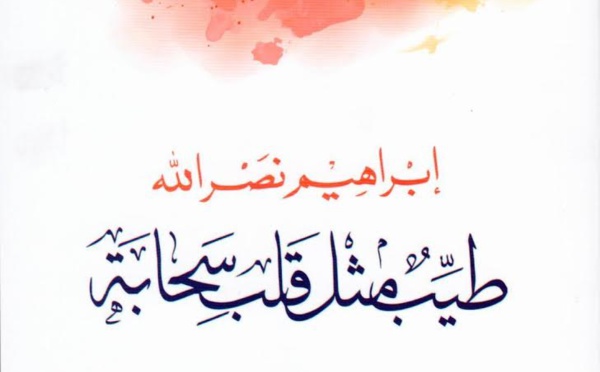 إبْراهِيم نَصْر الله
طيِّب مثْل قَلب سَحابَة